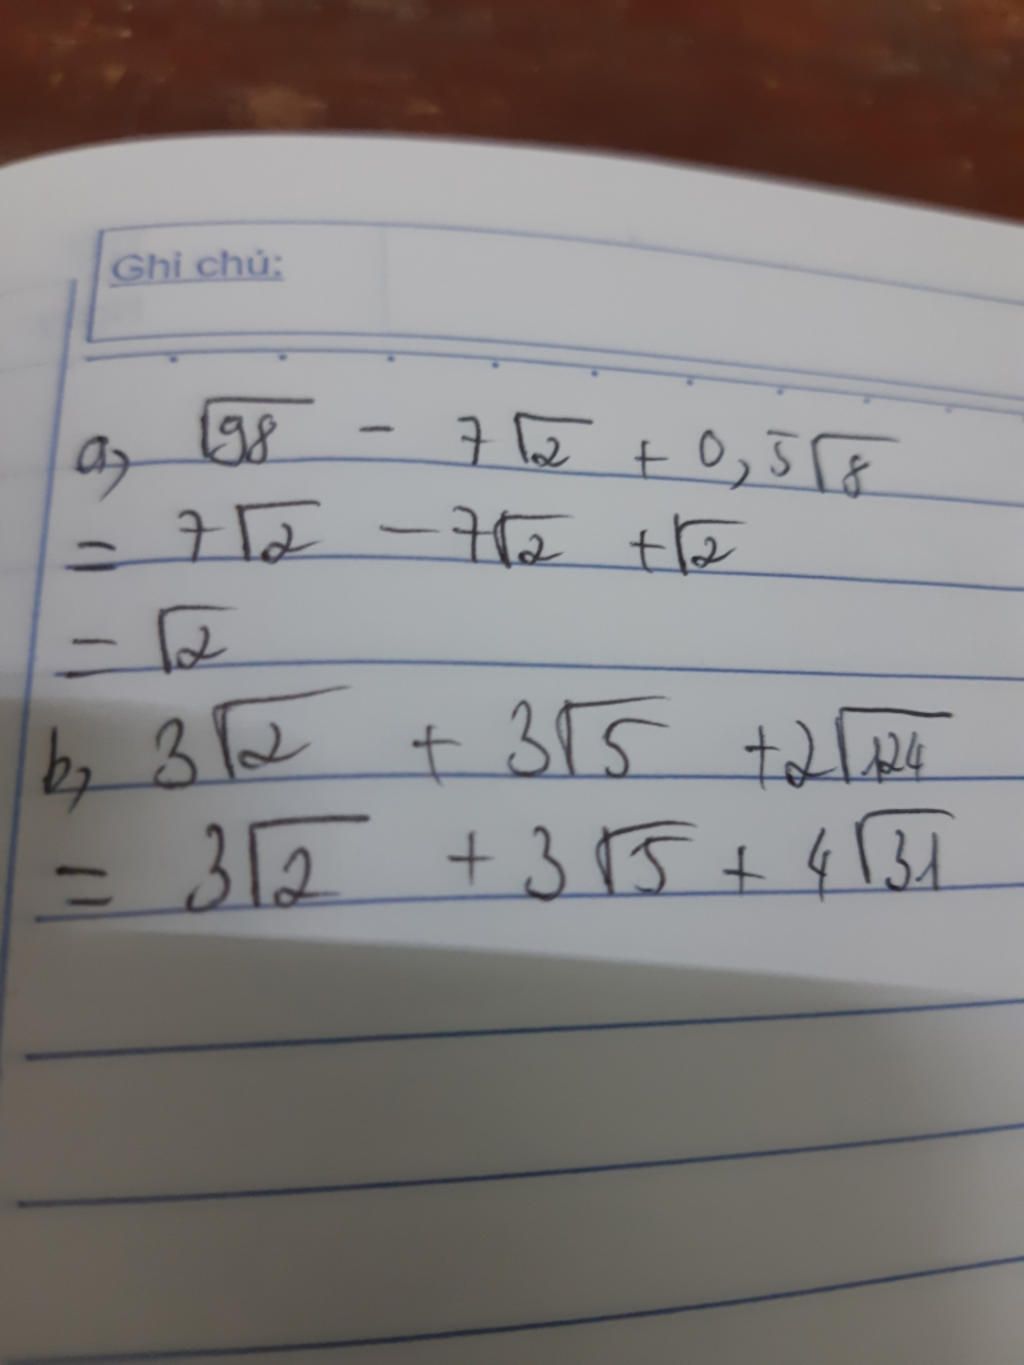 Ghi chú:
a, √98 - 7√2 + 0,5√8
= 7√2 - 7√2 + √2
= √2
b, 3√2 + 3√5 + 2√124
= 3√2 + 3√5 + 4√31